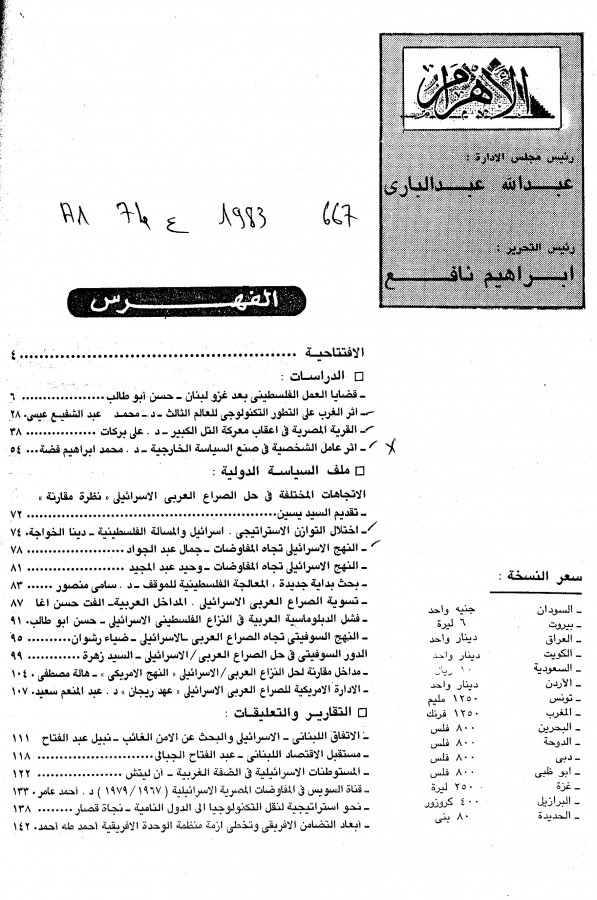 الأهرام
رئيس مجلس الادارة :
عبدالله عبدالبارى
رئيس التحرير :
ابراهيم نافع
A1 74 ع 1983 667
الفهرس
الافتتاحية .......... ٤
□ الدراسات :
ـ قضايا العمل الفلسطينى بعد غزو لبنان ـ حسن أبو طالب .......... ٦
ـ اثر الغرب على التطور التكنولوجى للعالم الثالث ـ د ـ محمد عبد الشفيع عيسى. ٢٨
ـ القرية المصرية فى اعقاب معركة التل الكبير ـ د . على بركات .......... ٣٨
ـ اثر عامل الشخصية فى صنع السياسة الخارجية ـ د . محمد ابراهيم فضة... ٥٤
□ ملف السياسة الدولية :
الاتجاهات المختلفة فى حل الصراع العربى الاسرائيلى « نظرة مقارنة »
ـ تقديم السيد يسين .......... ٧٢
ـ اختلال التوازن الاستراتيجى . اسرائيل والمسالة الفلسطينية ـ دينا الخواجة. ٧٤
ـ النهج الاسرائيلى تجاه المفاوضات ـ جمال عبد الجواد .......... ٧٨
ـ النهج الاسرائيلى تجاه المفاوضات ـ وحيد عبد المجيد .......... ٨١
ـ بحث بداية جديدة ، المعالجة الفلسطينية للموقف ـ د . سامى منصور ...... ٨٣
ـ تسوية الصراع العربى الاسرائيلى . المداخل العربية ـ الفت حسن اغا ٨٧
ـ فشل الدبلوماسية العربية فى النزاع الفلسطينى الاسرائيلى ـ حسن ابو طالب. ٩١
ـ النهج السوفيتى تجاه الصراع العربى ـ الاسرائيلى ـ ضياء رشوان .......... ٩٥
الدور السوفيتى فى حل الصراع العربى/الاسرائيلى ـ السيد زهرة .......... ٩٩
ـ مداخل مقارنة لحل النزاع العربى/الاسرائيلى « النهج الامريكى » ـ هالة مصطفى. ١٠٤
ـ الادارة الامريكية للصراع العربى الاسرائيلى « عهد ريجان » د . عبد المنعم سعيد. ١٠٧
□ التقارير والتعليقات :
ـ الاتفاق اللبنانى ـ الاسرائيلى والبحث عن الامن الغائب ـ نبيل عبد الفتاح ١١١
ـ مستقبل الاقتصاد اللبنانى ـ عبد الفتاح الجبالى .......... ١١٨
ـ المستوطنات الاسرائيلية فى الضفة الغربية ـ آن ليتش .......... ١٢٢
ـ قناة السويس فى المفاوضات المصرية الاسرائيلية ( ١٩٦٧/١٩٧٩ ) د . أحمد عامر. ١٣٣
ـ نحو استراتيجية لنقل التكنولوجيا الى الدول النامية ـ نجاة قصار .......... ١٣٨
ـ أبعاد التضامن الافريقى وتخطى ازمة منظمة الوحدة الافريقية أحمد طه أحمد. ١٤٢
سعر النسخة :
ـ السودان جنيه واحد
ـ بيروت ٦ ليرة
ـ العراق دينار واحد
ـ الكويت دينار واحد
ـ السعودية ١٠ ريال
ـ الأردن دينار واحد
ـ تونس ١٢٥٠ مليم
ـ المغرب ١٢٥٠ فرنك
ـ البحرين ٨٠٠ فلس
ـ الدوحة ٨٠٠ فلس
ـ دبى ٨٠٠ فلس
ـ ابو ظبى ٨٠٠ فلس
ـ غزة ٢٥٠ ليرة
ـ البرازيل ٤٠٠ كروزور
ـ الحديدة ٨٠ بنى